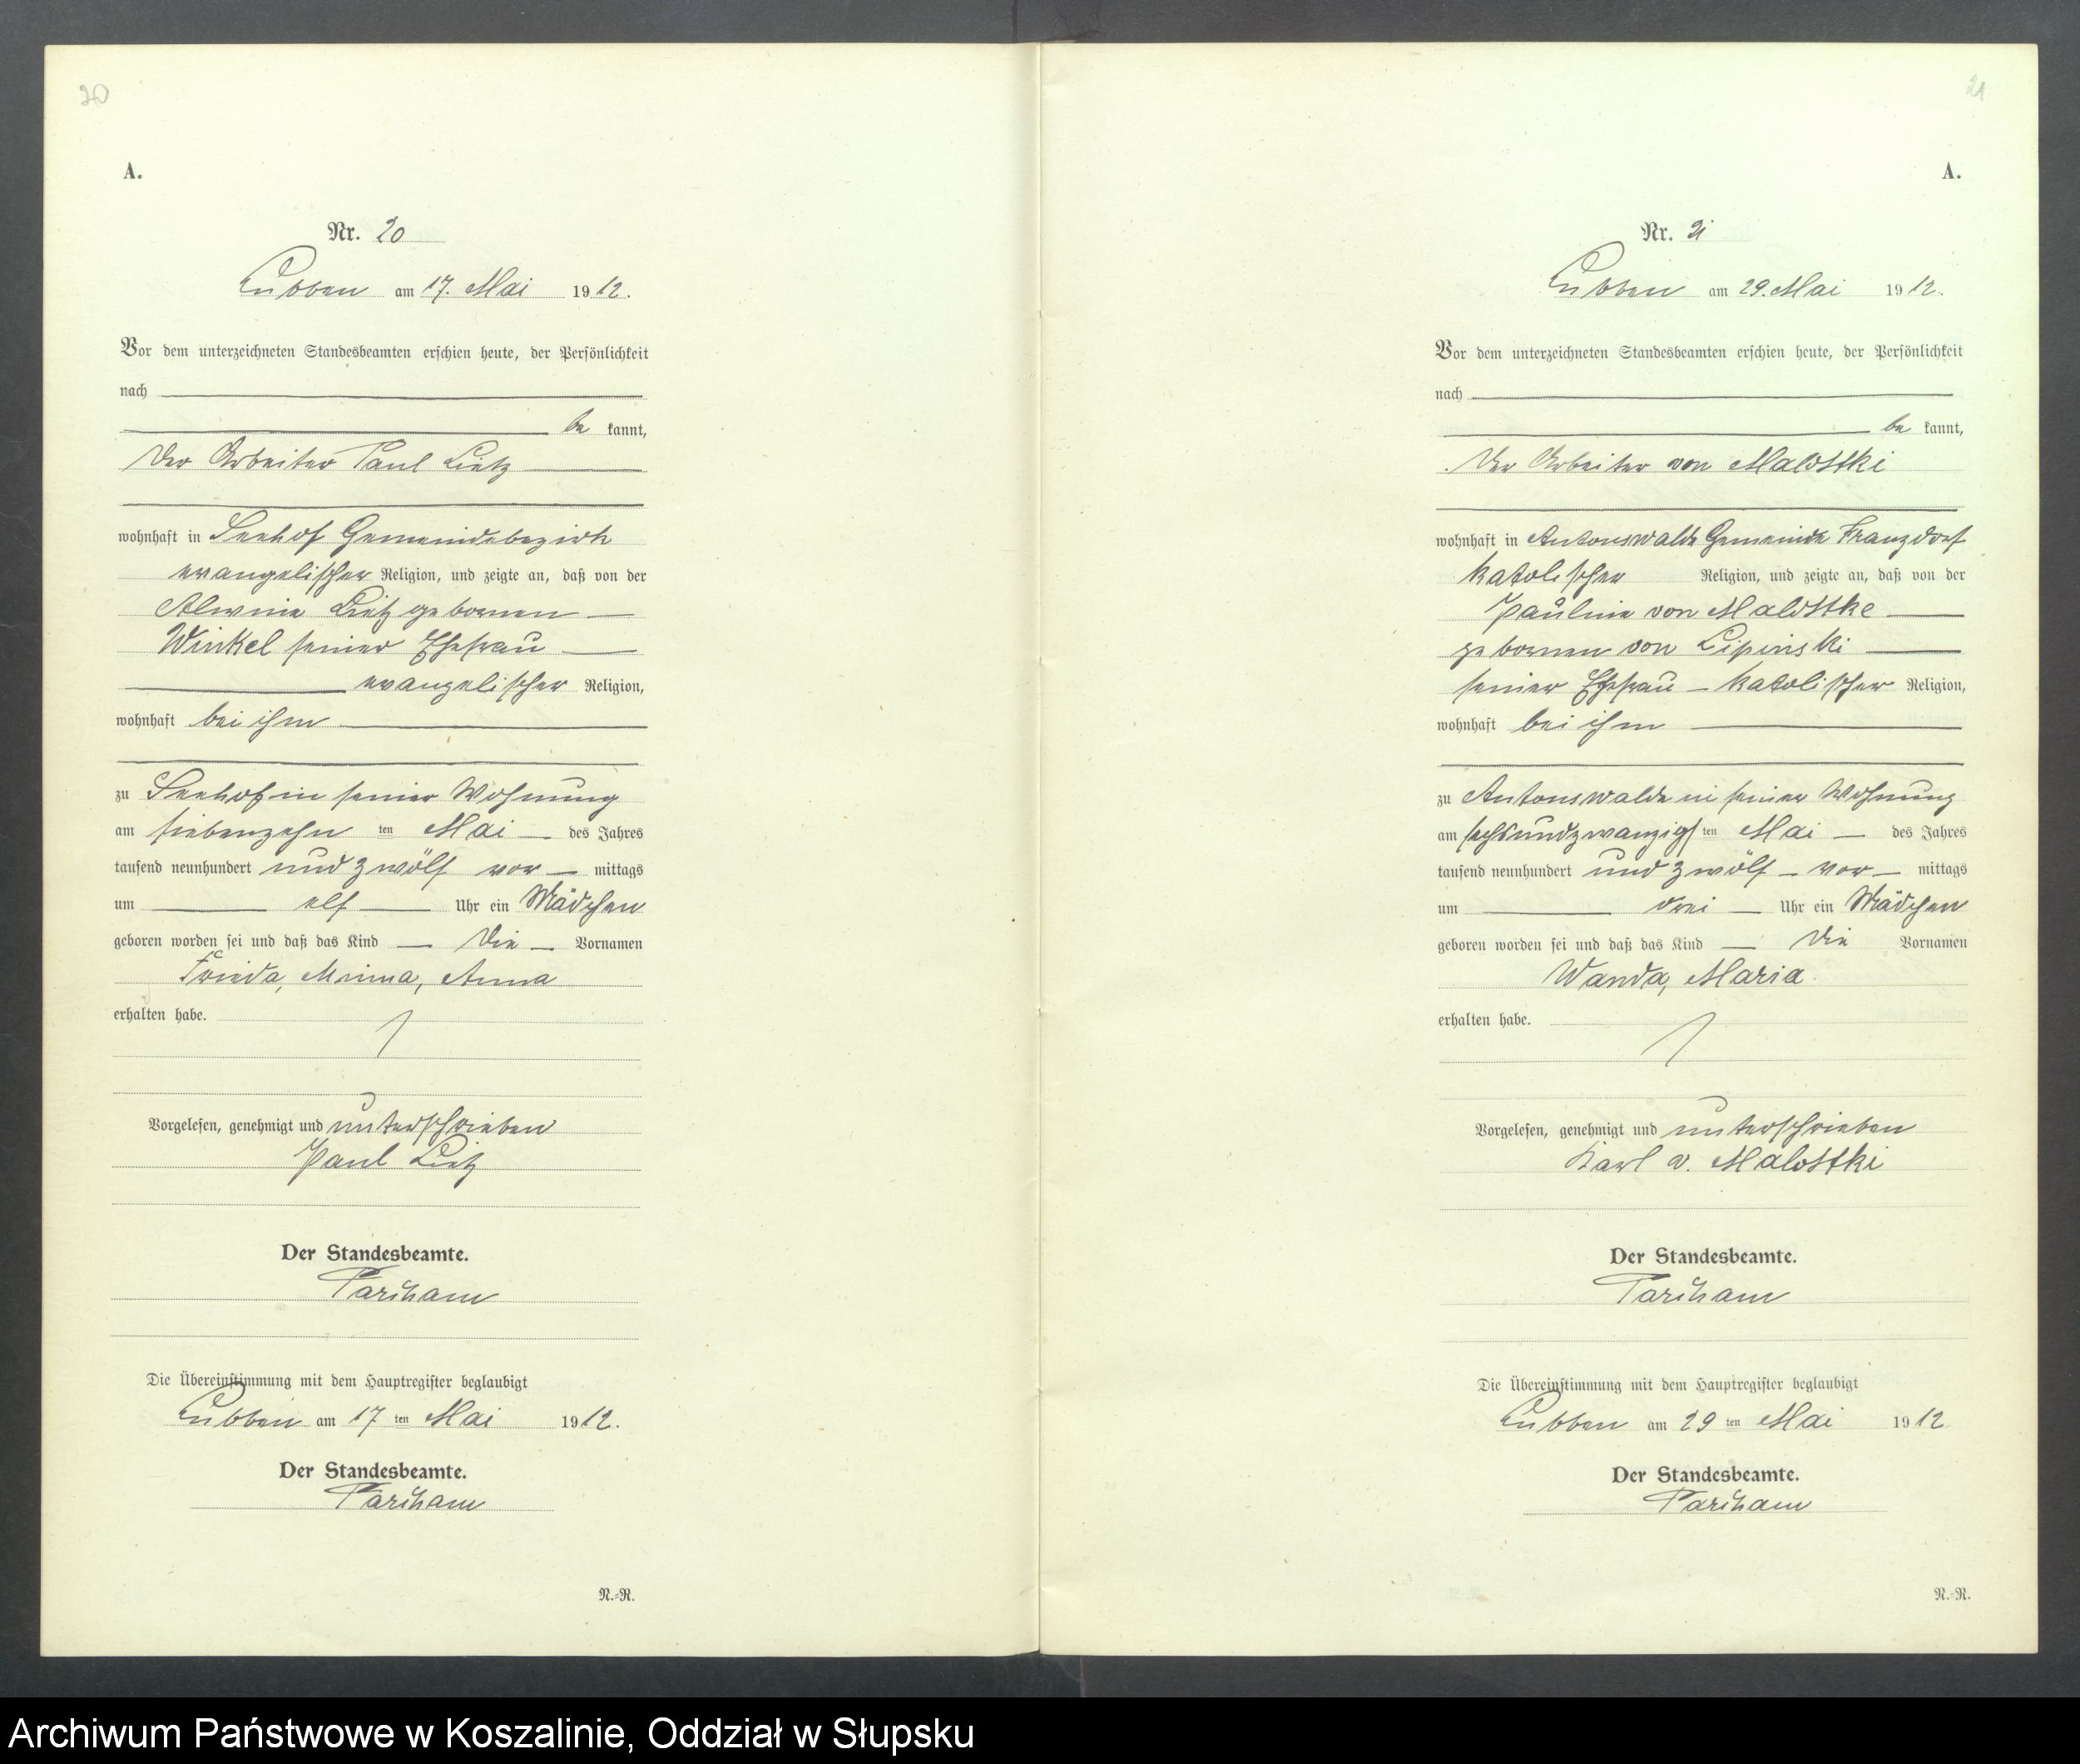 20
A.
Nr. 20
Lübben am 17. Mai 1912.
Vor dem unterzeichneten Standesbeamten erschien heute, der Persönlichkeit
nach
be kannt,
der Arbeiter Paul Lietz
wohnhaft in Seehof Gemeindebezirk
evangelischer Religion, und zeigte an, daß von der
Alwine Lietz gebornen
Winkel seiner Ehefrau
evangelischer Religion,
wohnhaft bei ihm
zu Seehof in seiner Wohnung
am siebenzehn ten Mai des Jahres
tausend neunhundert und zwölf vor mittags
um elf Uhr ein Mädchen
geboren worden sei und daß das Kind die Vornamen
Frieda, Minna, Anna
erhalten habe.
Vorgelesen, genehmigt und unterschrieben
Paul Lietz
Der Standesbeamte.
Die Übereinstimmung mit dem Hauptregister beglaubigt
Lübben am 17 ten Mai 1912.
Der Standesbeamte.
N.=R.
21
A.
Nr. 21
Lübben am 29. Mai 1912.
Vor dem unterzeichneten Standesbeamten erschien heute, der Persönlichkeit
nach
be kannt,
der Arbeiter von Malottki
wohnhaft in Antonswalde Gemeinde Franzdorf
katolischer Religion, und zeigte an, daß von der
Pauline von Malottke
gebornen von Lipinski
seiner Ehefrau – katolischer Religion,
wohnhaft bei ihm
zu Antonswalde in seiner Wohnung
am sechsundzwanzigs ten Mai des Jahres
tausend neunhundert und zwölf – vor – mittags
um drei Uhr ein Mädchen
geboren worden sei und daß das Kind die Vornamen
Wanda, Maria
erhalten habe.
Vorgelesen, genehmigt und unterschrieben
Karl v. Malottki
Der Standesbeamte.
Die Übereinstimmung mit dem Hauptregister beglaubigt
Lübben am 29 ten Mai 1912
Der Standesbeamte.
N.=R.
Archiwum Państwowe w Koszalinie, Oddział w Słupsku